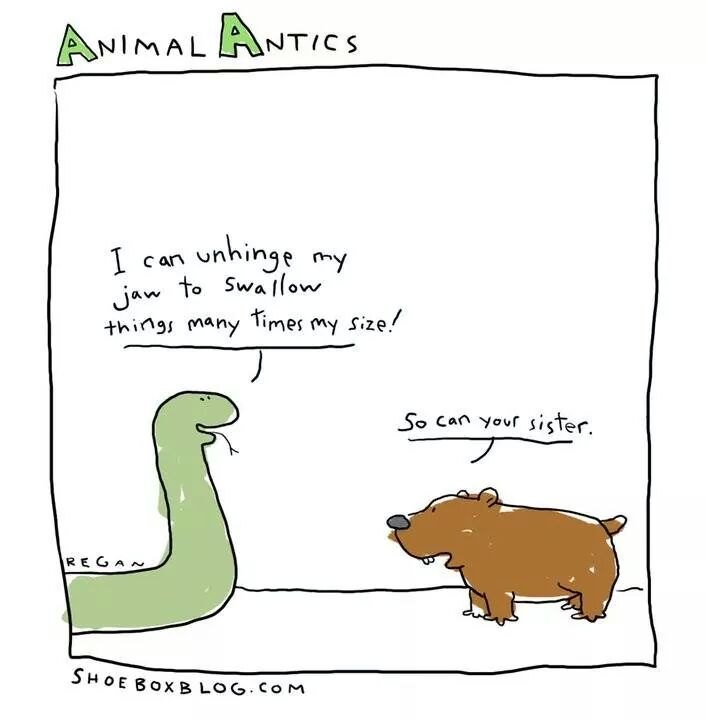 ANIMAL ANTICS
I can unhinge my
jaw to swallow
things many times my size!
So can your sister.
REGAN
SHOEBOXBLOG.COM